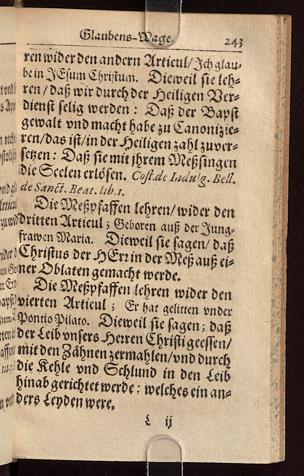 Glaubens-Wage. 243
ren wider den andern Articul / Ich glau-
be in JEsum Christum. Dieweil sie leh-
ren / daß wir durch der Heiligen Ver-
dienst selig werden: Daß der Bapst
gewalt vnd macht habe zu Canonizie-
ren / das ist / in der Heiligen zahl zuver-
setzen: Daß sie mit jhrem Meßsingen
die Seelen erlösen. Cost. de Indulg. Bell.
de Sanct. Beat. lib. 1.
Die Meßpfaffen lehren / wider den
dritten Articul; Geboren auß der Jung-
frawen Maria. Dieweil sie sagen / daß
Christus der HErr in der Meß auß ei-
ner Oblaten gemacht werde.
Die Meßpfaffen lehren wider den
vierten Articul; Er hat gelitten vnder
Pontio Pilato. Dieweil sie sagen; daß
der Leib vnsers Herren Christi geessen /
mit den Zähnen zermahlen / vnd durch
die Kehle vnd Schlund in den Leib
hinab gerichtet werde: welches ein an-
ders Leyden were.
L ij